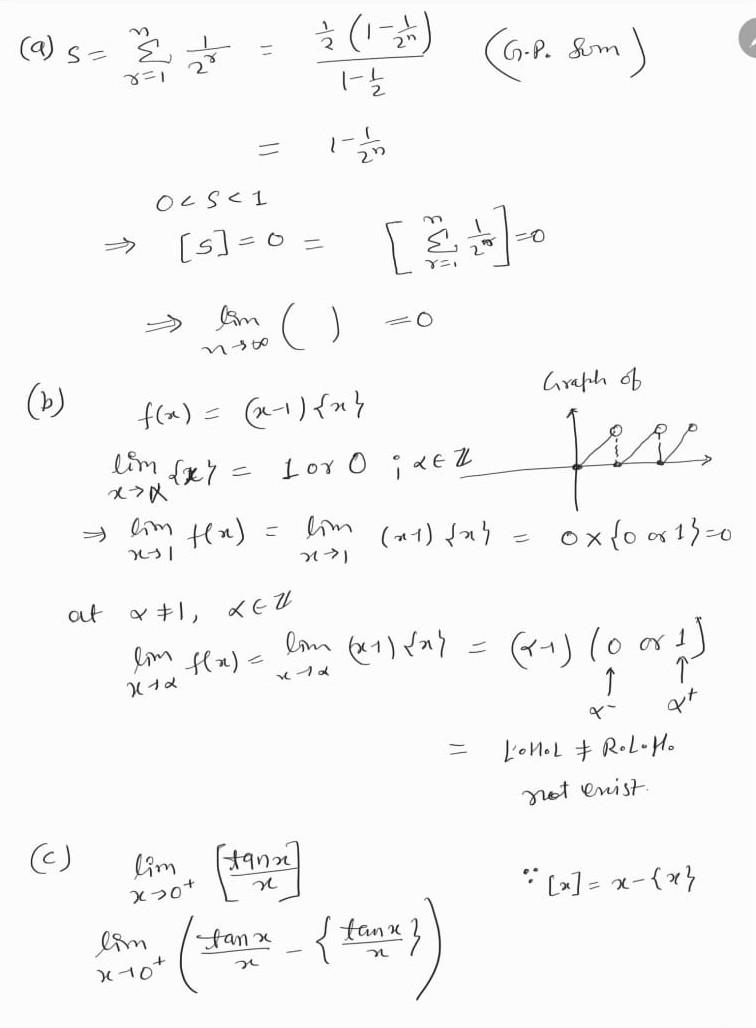 (a) S = ∑_{r=1}^{n} 1/2^r = (1/2 (1 - 1/2^n)) / (1 - 1/2) (G.P. Sum)
= 1 - 1/2^n
0 < S < 1
⇒ [S] = 0 = [∑_{r=1}^{n} 1/2^r] = 0
⇒ lim_{n→∞} ( ) = 0
(b) Graph of
f(x) = (x-1){x}
lim_{x→α} {x} = 1 or 0 ; α∈ℤ
⇒ lim_{x→1} f(x) = lim_{x→1} (x-1) {x} = 0 × {0 or 1} = 0
at α ≠ 1, α∈ℤ
lim_{x→α} f(x) = lim_{x→α} (x-1){x} = (α-1) (0 or 1)
↑ ↑
α⁻ α⁺
= L.H.L ≠ R.L.H.
not exist.
(c) lim_{x→0⁺} [tanx/x] ∵ [x] = x - {x}
lim_{x→0⁺} (tanx/x - {tanx/x})